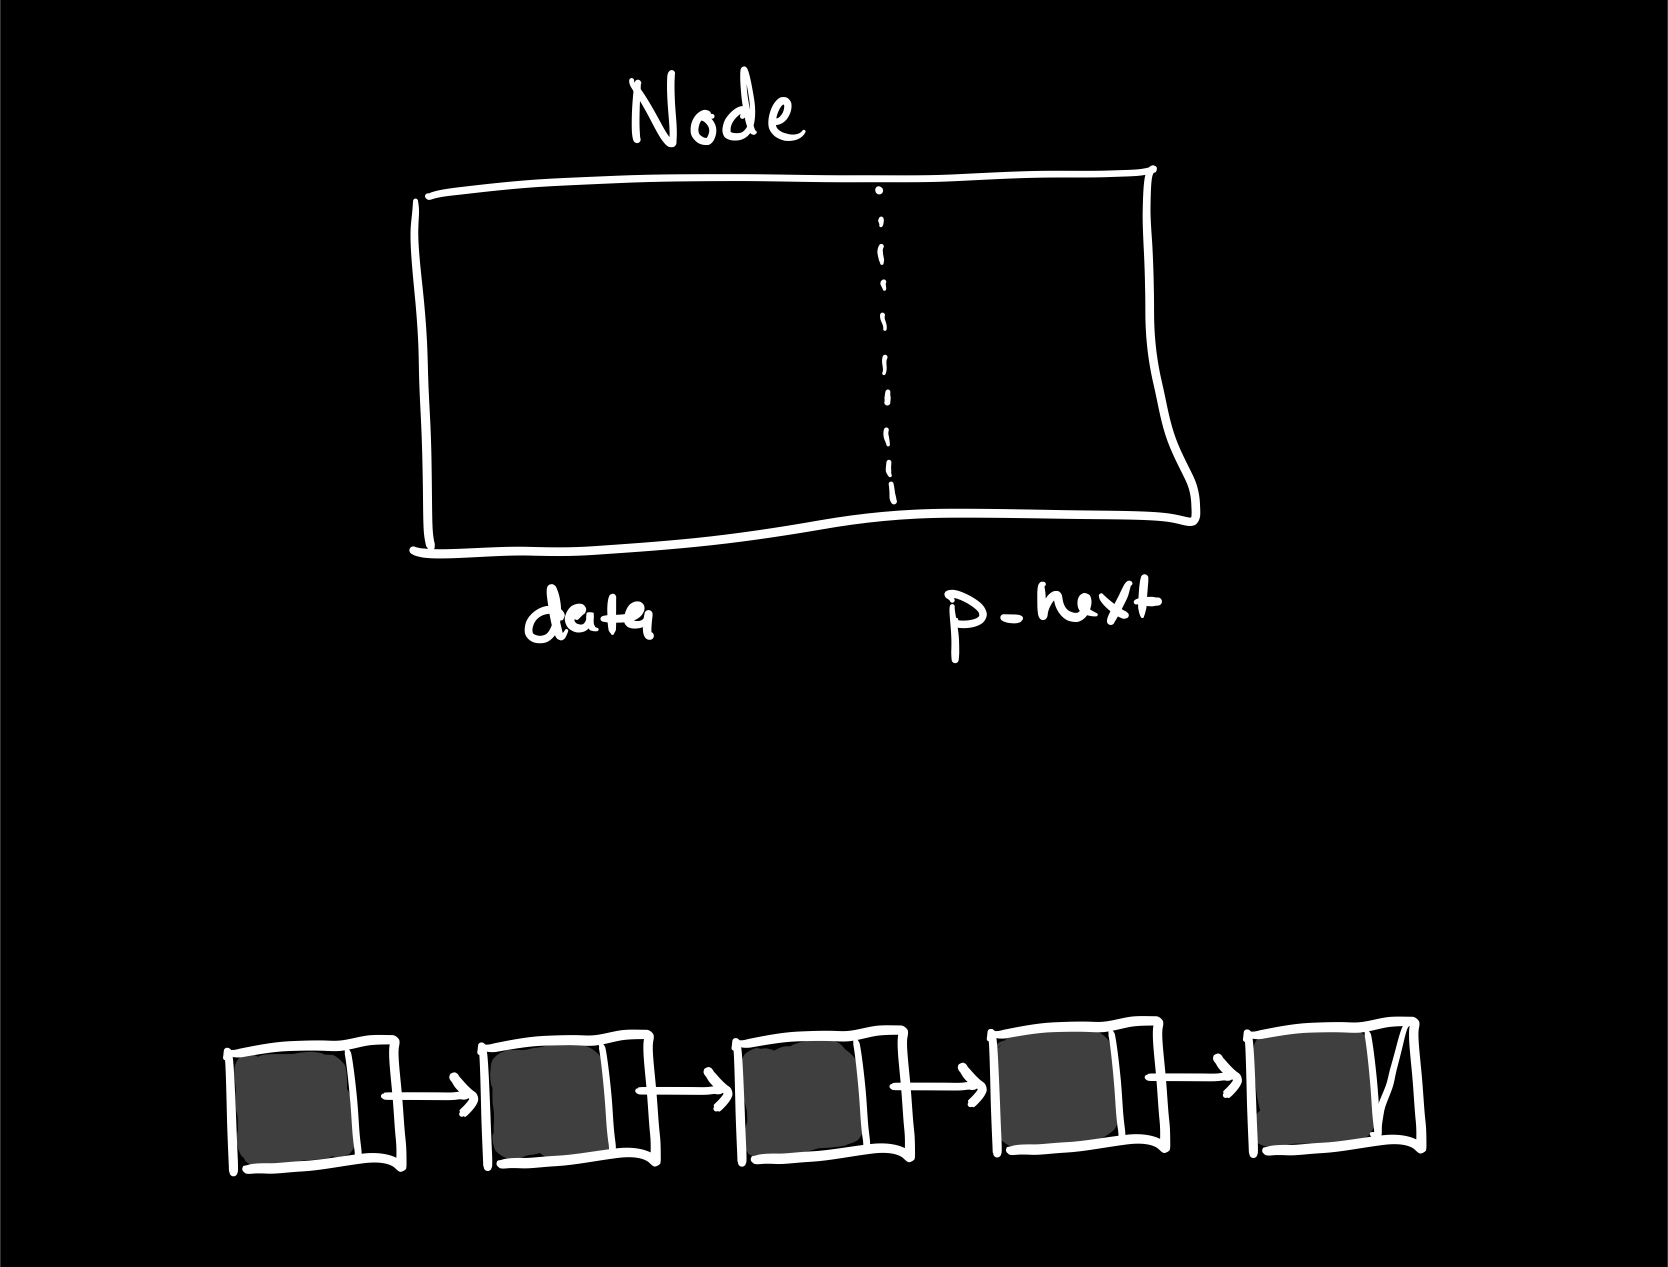 Node
data p_next